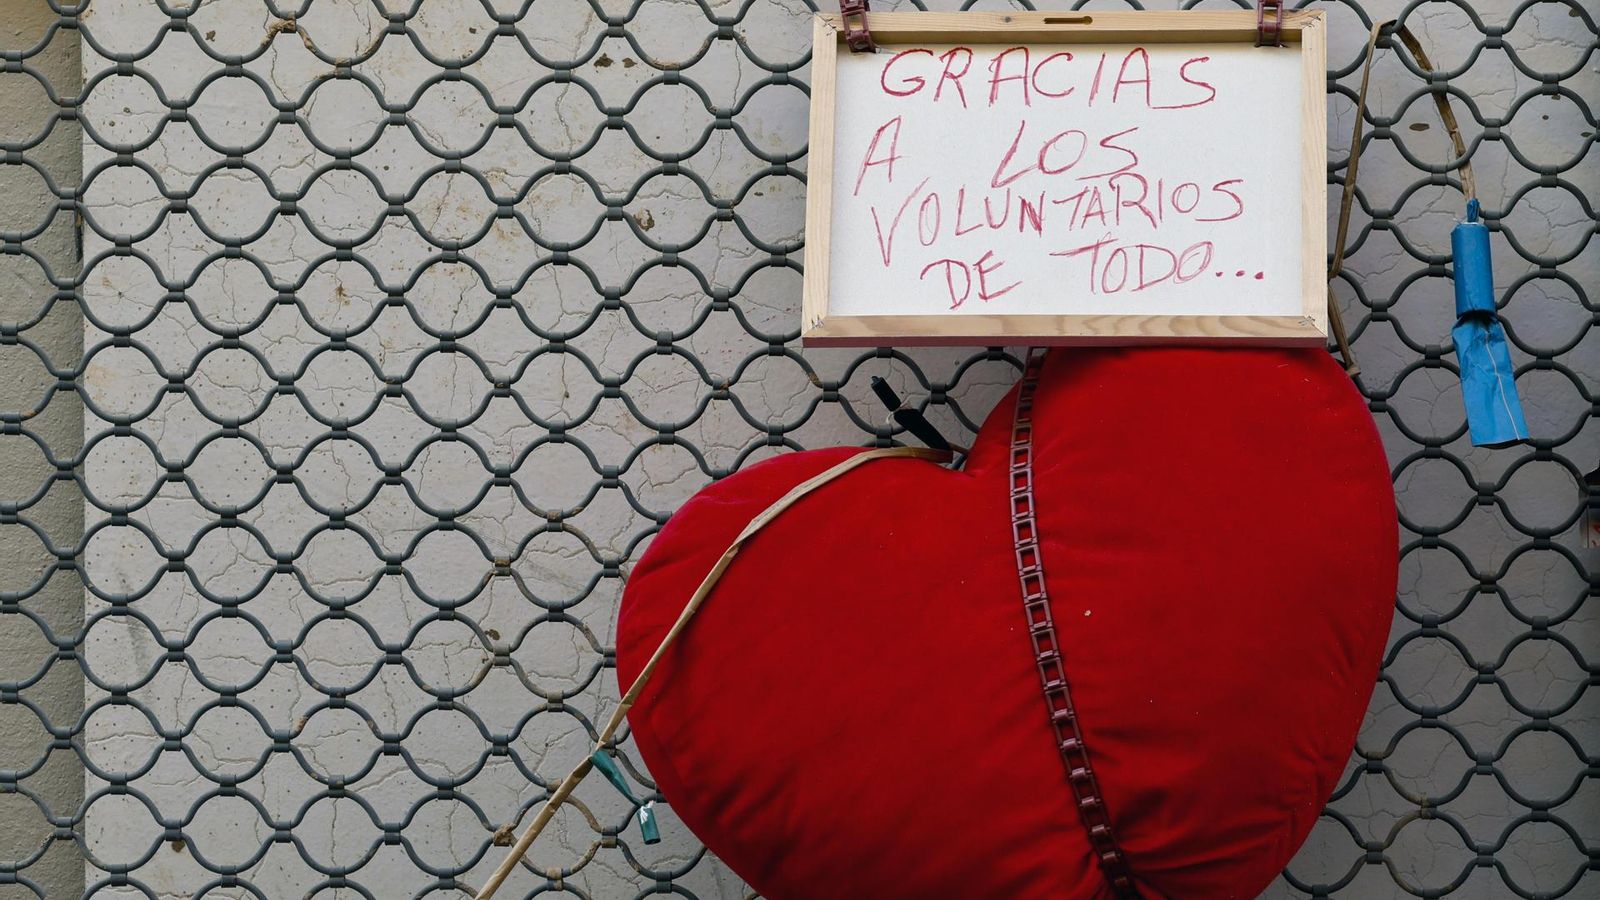 GRACIAS
A LOS
VOLUNTARIOS
DE TODO...